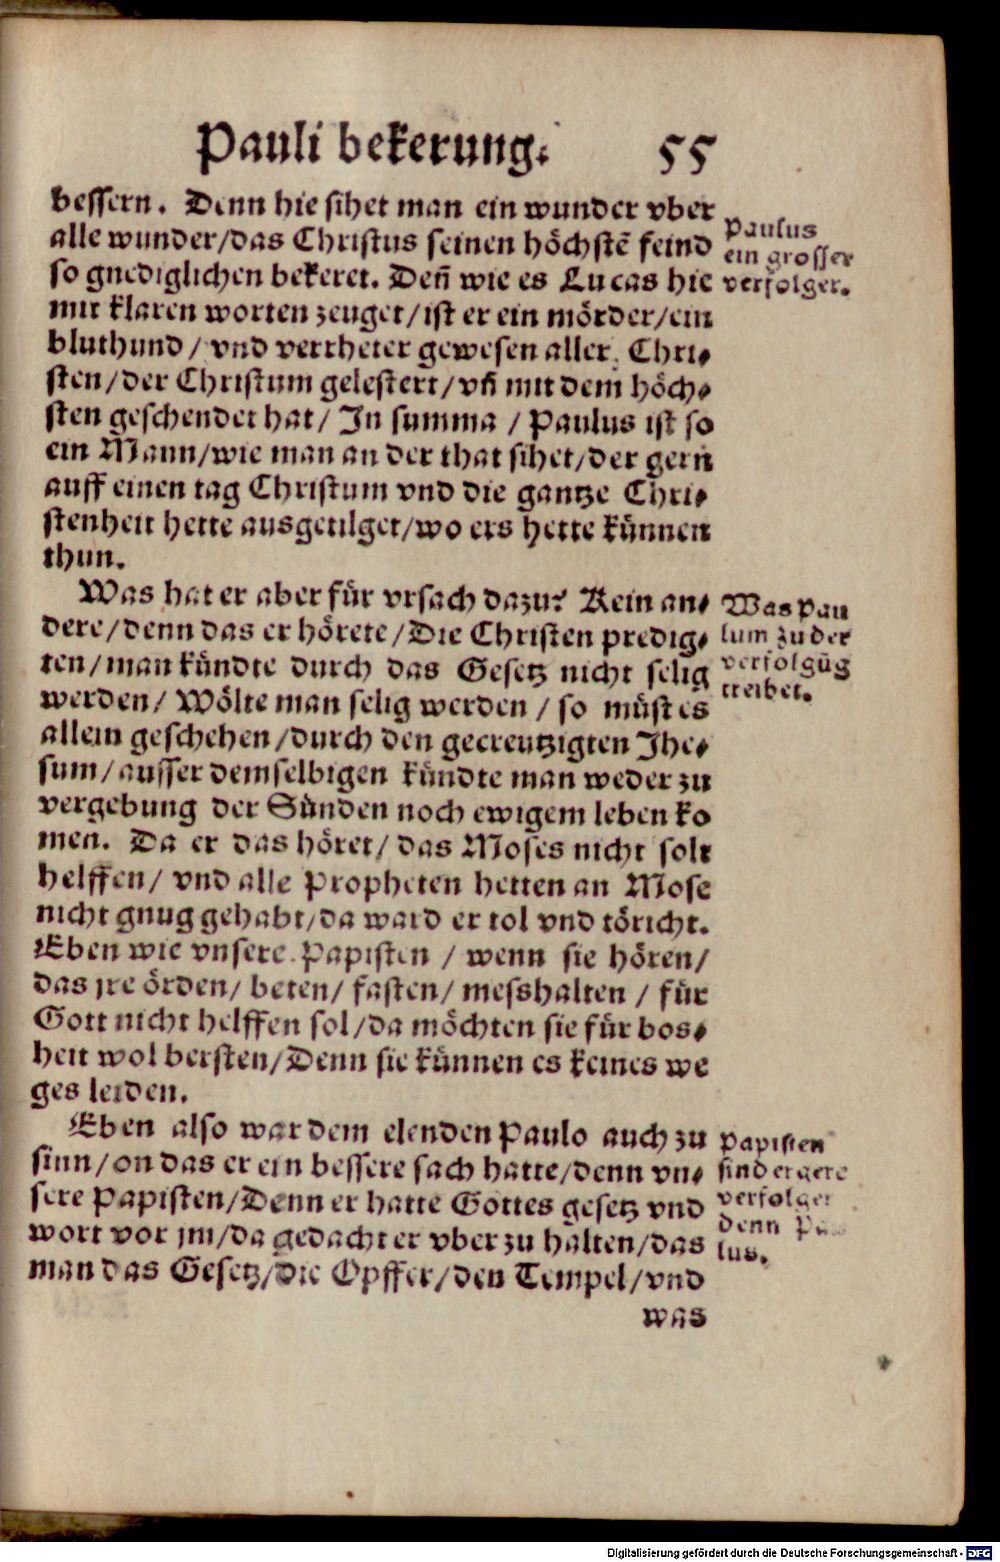 Pauli bekerung. 55
bessern. Denn hie sihet man ein wunder vber
alle wunder/das Christus seinen höchstē feind
so gnediglichen bekeret. Deñ wie es Lucas hie
mit klaren worten zeuget/ist er ein mörder/ein
bluthund/vnd verrheter gewesen aller Chri⸗
sten/der Christum gelestert/vñ mit dem höch⸗
sten geschendet hat/In summa/Paulus ist so
ein Mann/wie man an der that sihet/der gern
auff einen tag Christum vnd die gantze Chri⸗
stenheit hette ausgetilget/wo ers hette künnen
thun.
Paulus
ein grosser
verfolger.
Was hat er aber für vrsach dazu? Kein an⸗
dere/denn das er hörete/Die Christen predig⸗
ten/man kündte durch das Gesetz nicht selig
werden/Wölte man selig werden/so müst es
allein geschehen/durch den gecreutzigten Jhe⸗
sum/ausser demselbigen kündte man weder zu
vergebung der Sünden noch ewigem leben ko
men. Da er das höret/das Moses nicht solt
helffen/vnd alle Propheten hetten an Mose
nicht gnug gehabt/da ward er tol vnd töricht.
Eben wie vnsere Papisten/wenn sie hören/
das jre örden/beten/fasten/messhalten/für
Gott nicht helffen sol/da möchten sie für bos⸗
heit wol bersten/Denn sie künnen es keines we
ges leiden.
Was Pau
lum zu der
verfolgūg
treibet.
Eben also war dem elenden Paulo auch zu
sinn/on das er ein bessere sach hatte/denn vn⸗
sere Papisten/Denn er hatte Gottes gesetz vnd
wort vor jm/da gedacht er vber zu halten/das
man das Gesetz/die Opffer/den Tempel/vnd
was
Papisten
sind ergere
verfolger
denn Pau
lus.
Digitalisierung gefördert durch die Deutsche Forschungsgemeinschaft - DFG